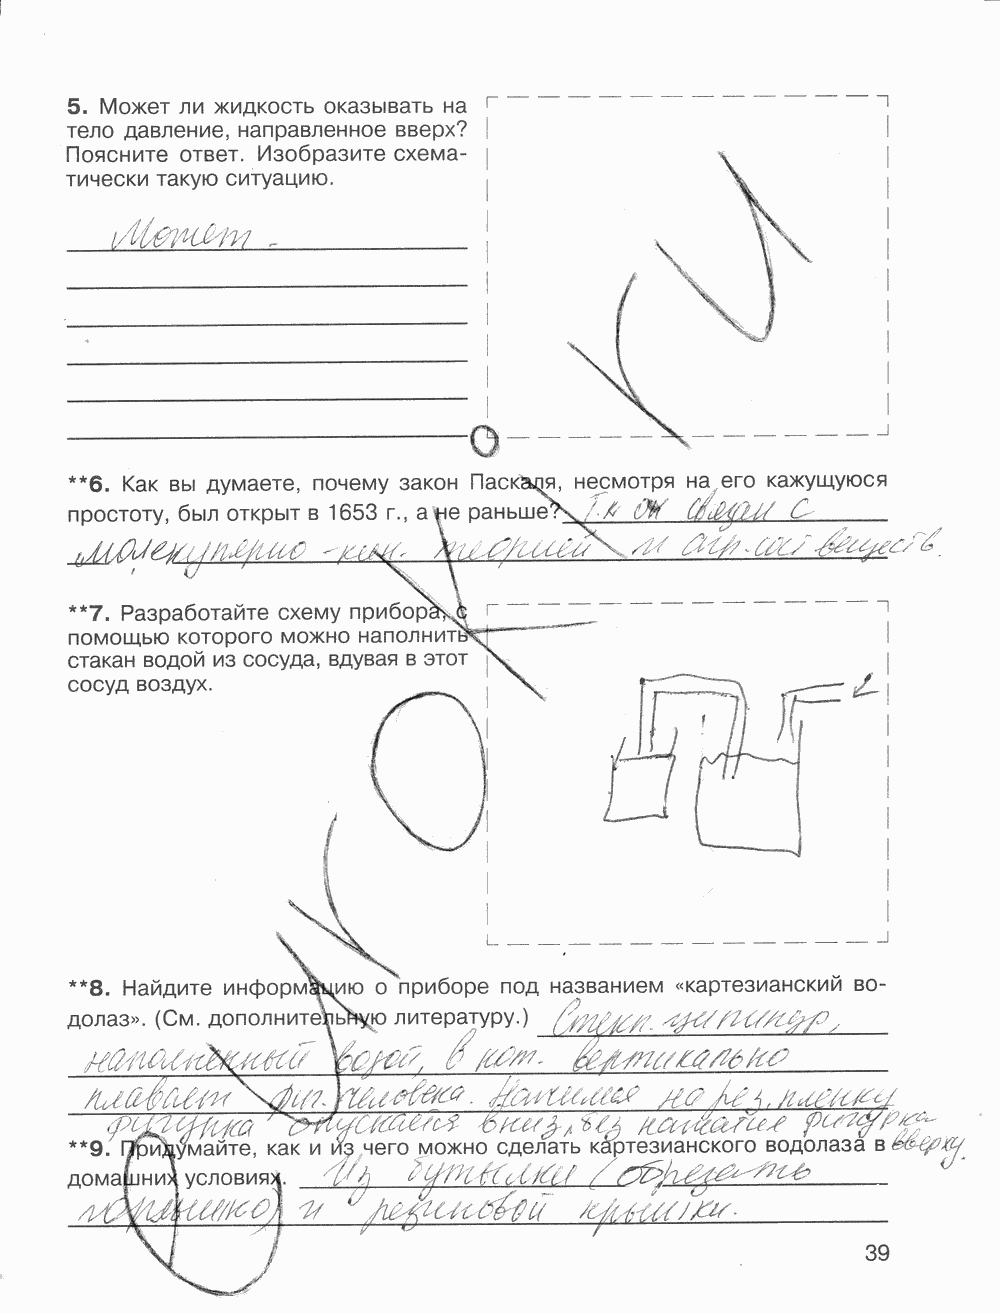 5. Может ли жидкость оказывать на
тело давление, направленное вверх?
Поясните ответ. Изобразите схема-
тически такую ситуацию.
Может.
**6. Как вы думаете, почему закон Паскаля, несмотря на его кажущуюся
простоту, был открыт в 1653 г., а не раньше? Т.к он связан с
молекулярно-кин. теорией и агр. сост веществ.
**7. Разработайте схему прибора, с
помощью которого можно наполнить
стакан водой из сосуда, вдувая в этот
сосуд воздух.
**8. Найдите информацию о приборе под названием «картезианский во-
долаз». (См. дополнительную литературу.) Стекл. цилиндр,
наполненный водой, в кот. вертикально
плавает фиг. человека. Нажимая на рез. пленку
фигурка опускается вниз, без нажатия фигурка
вверху.
**9. Придумайте, как и из чего можно сделать картезианского водолаза в
домашних условиях. Из бутылки (обрезать
горлышко) и резиновой крышки.
39